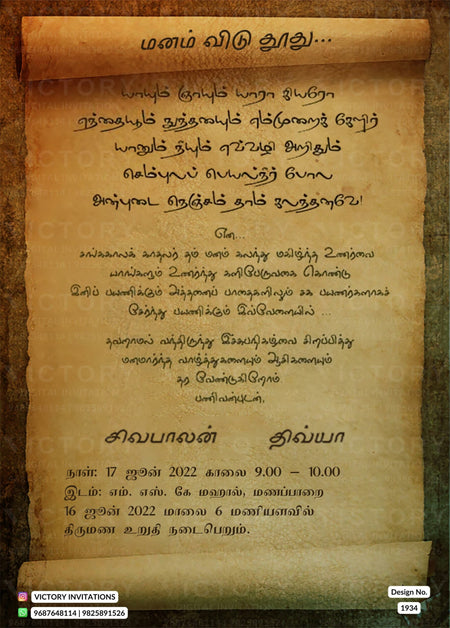 மனம் விடு தூது...
யாயும் ஞாயும் யாரா கியரோ
எந்தையும் நுந்தையும் எம்முறைக் கேளிர்
யானும் நீயும் எவ்வழி அறிதும்
செம்புலப் பெயல்நீர் போல
அன்புடை நெஞ்சம் தாம் கலந்தனவே!
என...
சங்ககாலக் காதலர் தம் மனம் கலந்து மகிழ்ந்த உணர்வை
யாங்களும் உணர்ந்து களிபேருவகை கொண்டு
இனிப் பயணிக்கும் அத்தனைப் பாதைகளிலும் சக பயணர்களாகச்
சேர்ந்து பயணிக்கும் இவ்வேளையில் ...
தவறாமல் வந்திருந்து இச்சுபநிகழ்வை சிறப்பித்து
மனமார்ந்த வாழ்த்துகளையும் ஆசிகளையும்
தர வேண்டுகிறோம்.
பணிவன்புடன்,
சிவபாலன் திவ்யா
நாள்: 17 ஜூன் 2022 காலை 9.00 – 10.00
இடம்: எம். எஸ். கே மஹால், மணப்பாறை
16 ஜூன் 2022 மாலை 6 மணியளவில்
திருமண உறுதி நடைபெறும்.
VICTORY INVITATIONS
9687648114 | 9825891526
Design No.
1934